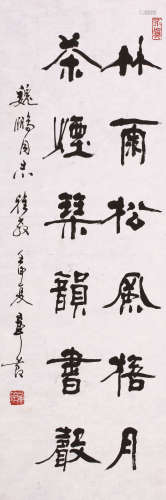 竹雨松風梧月
茶煙琴韻書聲
魏鵬同志 雅教 壬申夏